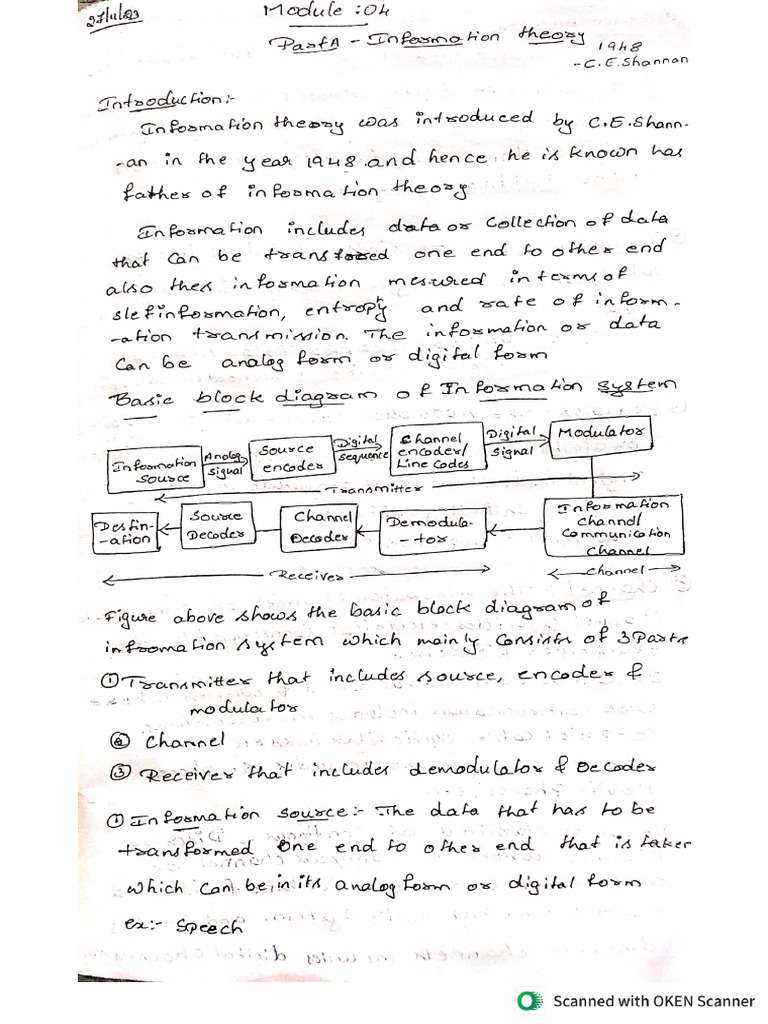 27/11/23
Module :04
Part A - Information theory
1948
- C.E. Shannon
Introduction:-
Information theory was introduced by C.E. Shann-
-an in the year 1948 and hence he is known has
father of information theory
Information includes data or Collection of data
that can be transfored one end to other end
also thes information mesured interms of
slefinformation, entropy and rate of inform-
-ation transmission. The information or data
Can be analog form or digital form
Basic block diagram of Information system
Information source
Analog signal
Source encoder
Digital sequence
Channel encoder/ Line Codes
Digital signal
Modulator
Transmitter
Destin-ation
Source Decoder
Channel Decoder
Demodula--tor
Information channel/ Communication channel
Receiver
channel
Figure above shows the basic block diagram of
infromation system which mainly Consists of 3 Parts
① Transmitter that includes source, encoder &
modulator
② Channel
③ Receiver that includes demodulator & Decoder
① Information source:- The data that has to be
transformed one end to other end that is taker
which can be, in its analog form or digital form
ex:- Speech
Scanned with OKEN Scanner